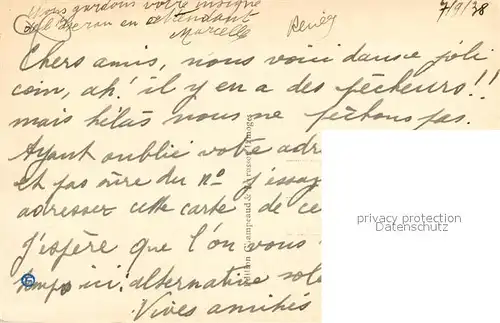 Nous gardons votre insigne
en attendant
Marcelle
Renée
7/9/38
Chers amis, nous voici dans ce joli
coin, ah! il y en a des pêcheurs!!
mais hélas nous ne pêchons pas.
Ayant oublié votre adre
et pas sûre du n° j'essay
adresser cette carte de ce
J'espère que l'on vous
temps ici: alternative sole
Vives amitiés
Limoges
privacy protection